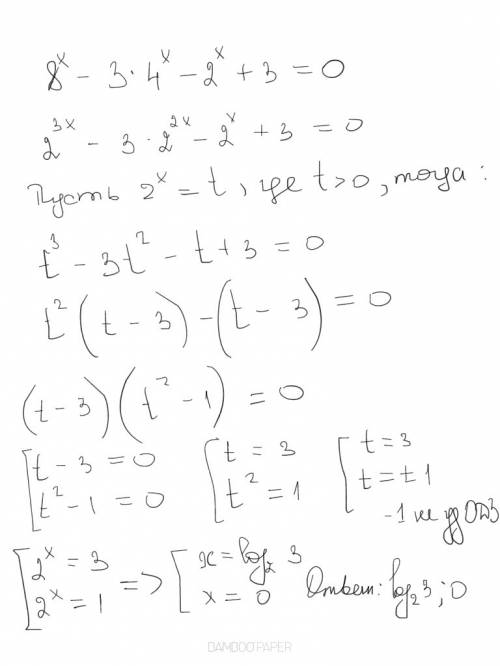 8^x - 3·4^x - 2^x + 3 = 0
2^{3x} - 3·2^{2x} - 2^x + 3 = 0
Пусть 2^x = t, где t>0, тогда:
t^3 - 3t^2 - t + 3 = 0
t^2(t - 3) - (t - 3) = 0
(t - 3)(t^2 - 1) = 0
[t - 3 = 0 [t = 3 [t = 3
t^2 - 1 = 0 t^2 = 1 t = ±1
-1 не уд ОДЗ
[2^x = 3 => [x = log_2 3
2^x = 1 x = 0 Ответ: log_2 3; 0
BAMBOOPAPER